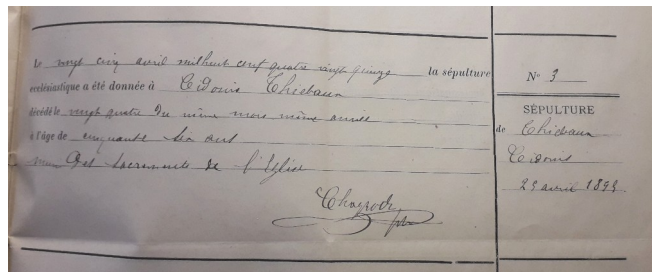 Le vingt cinq avril mil huit cent quatre vingt quinze la sépulture
ecclésiastique a été donnée à Thiebaux
décédé le vingt quatre du même mois même année
à l'âge de cinquante six ans
muni des sacrements de l'Eglise
N° 3
SÉPULTURE
de Thiebaux
25 avril 1895